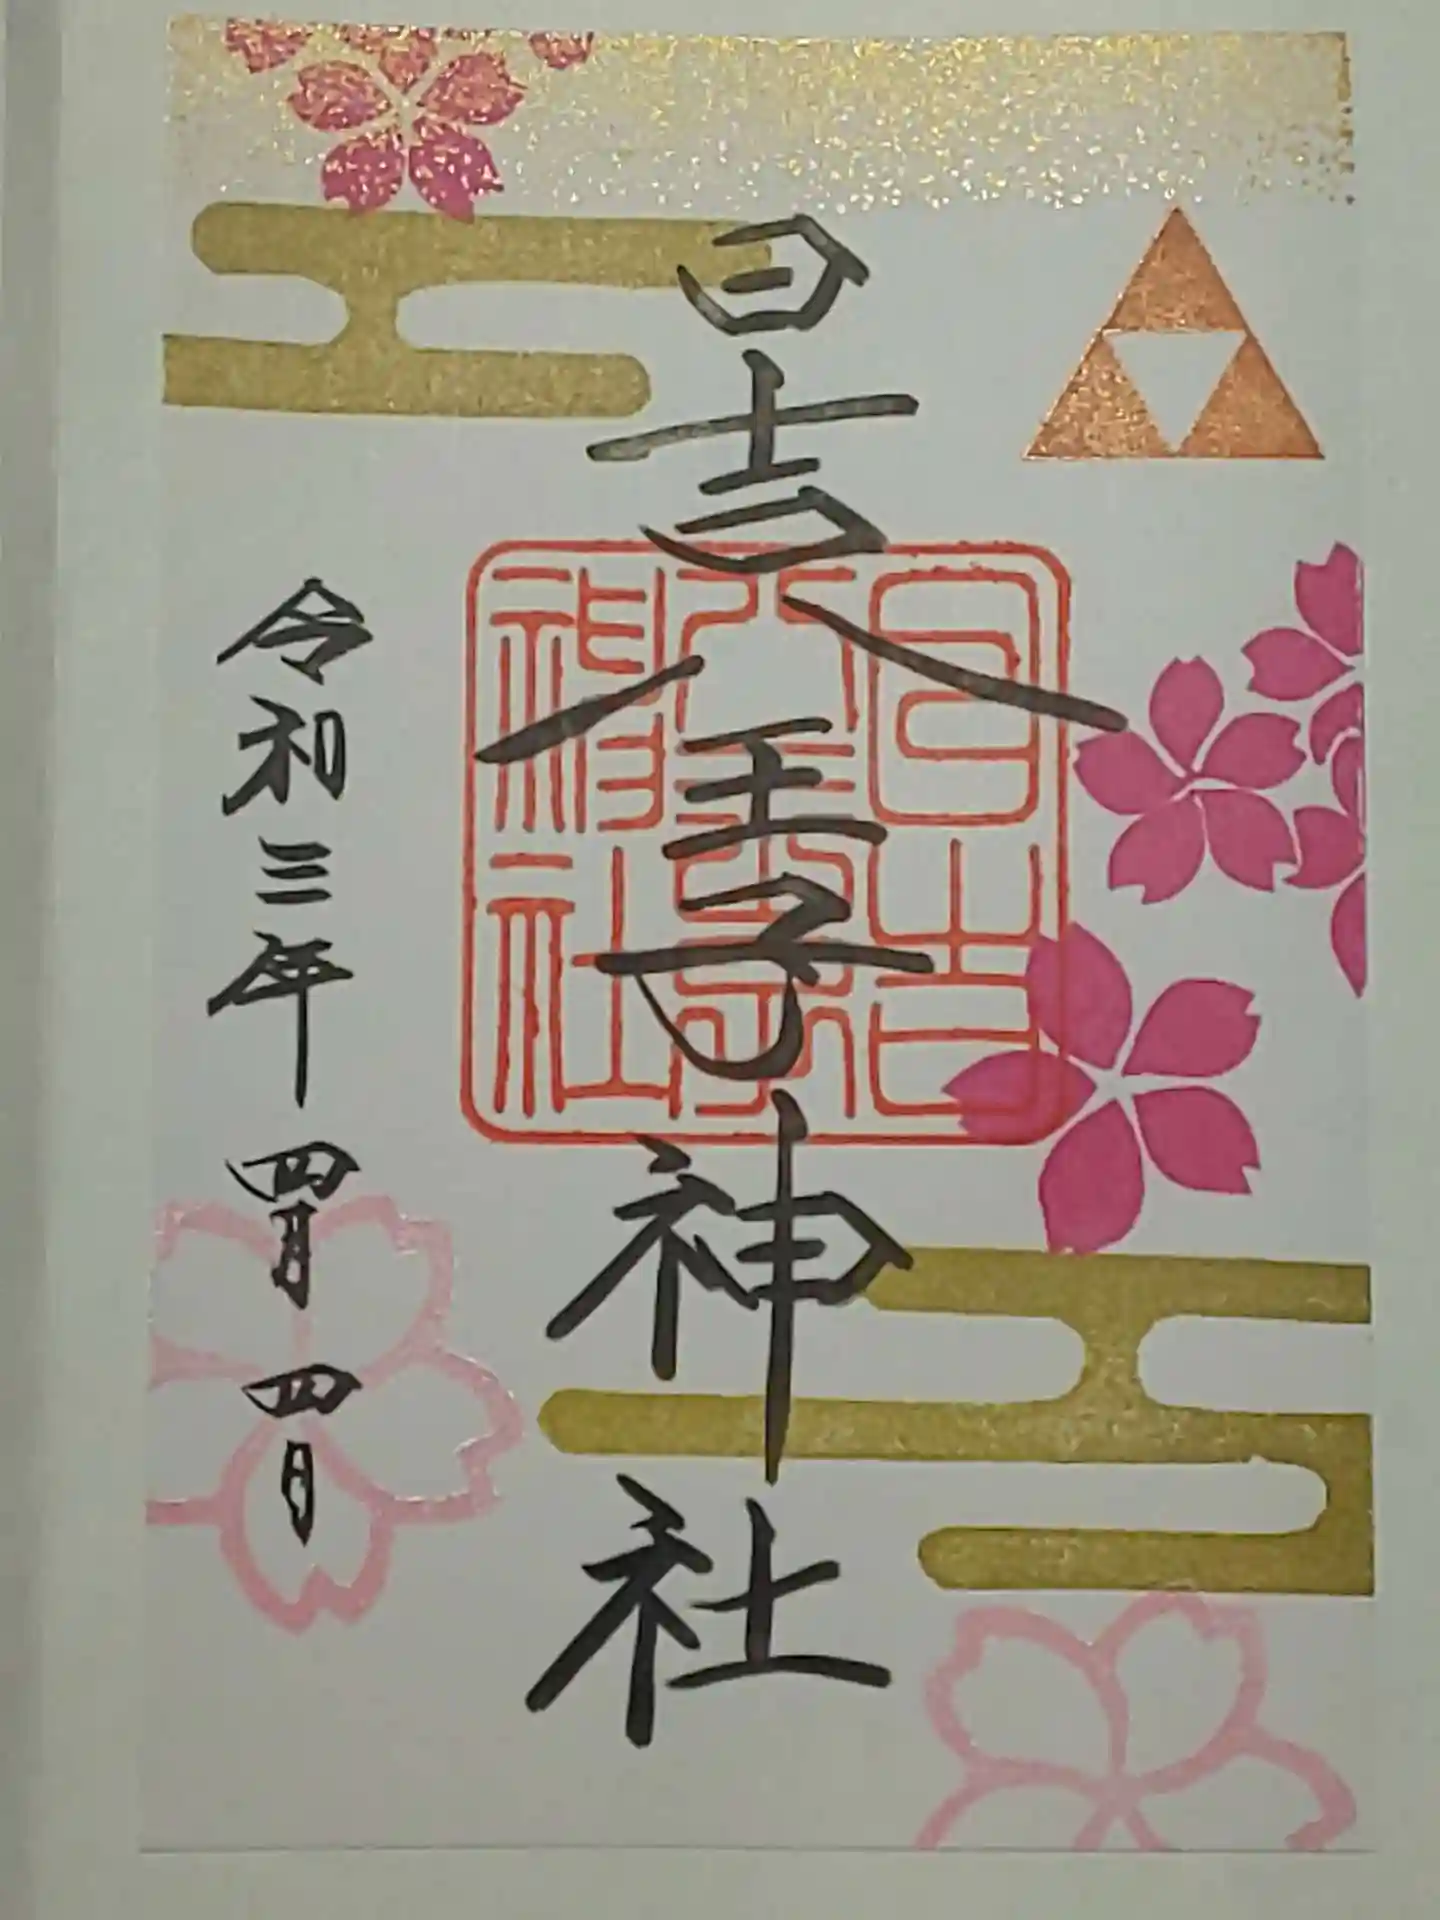 日吉八王子神社
日吉八王子神社
令和三年四月四日